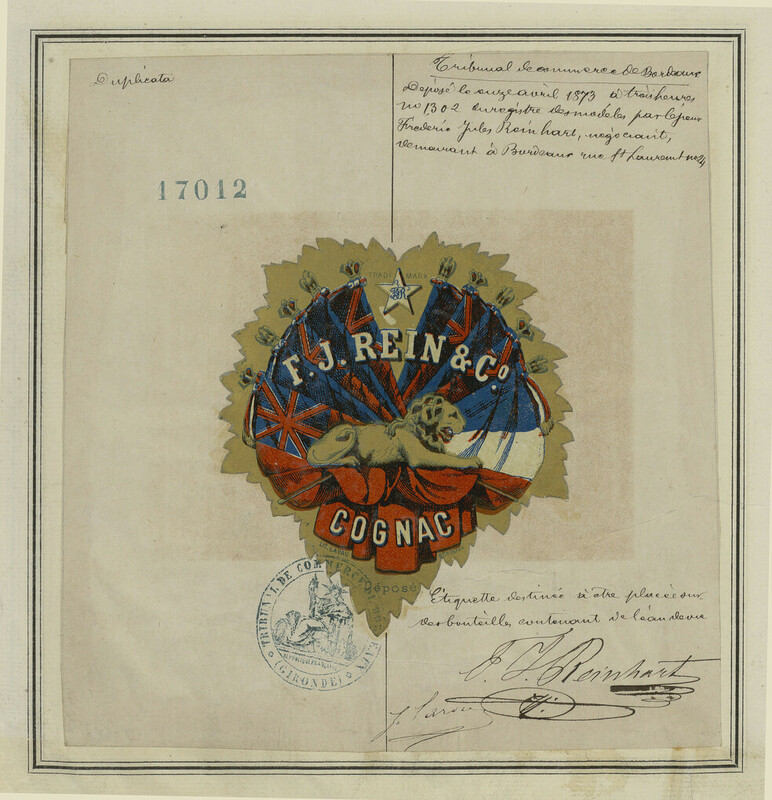 Duplicata
Tribunal de commerce de Bordeaux
Déposé le onze avril 1873 à trois heures
no 1302 du registre des modèles par le sieur
Frederic Jules Reinhart, négociant,
demeurant à Bordeaux rue St Laurent no 24
17012
TRADE MARK
F. J. REIN & Co
COGNAC
Déposé
TRIBUNAL DE COMMERCE
(GIRONDE)
Etiquette destinée à être placée sur
des bouteilles contenant de l'eau de vie
F. J. Reinhart